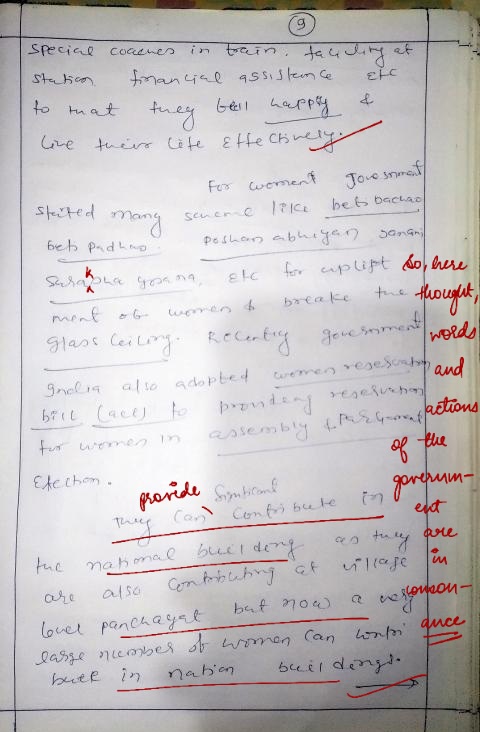 9
special coaches in train. facility at
station financial assistence etc
to that they fell happy &
live their life effectively.
For women government
started many scheme like beti bachao
beti padhao. poshan abhiyan janani
k
suraksha yojana, etc for uplift
ment of women & break the
glass ceiling. Recently government
India also adopted women reservation
bill (act) to providing reservation
for women in assembly & Parliament
Election.
provide significant
They can contribute in
the national building as they
are also contributing at village
level panchayat but now a very
large number of women can contri
bute in nation buildings.
so, here
thought,
words
and
actions
of the
governm-
ent
are
in
conson-
ance